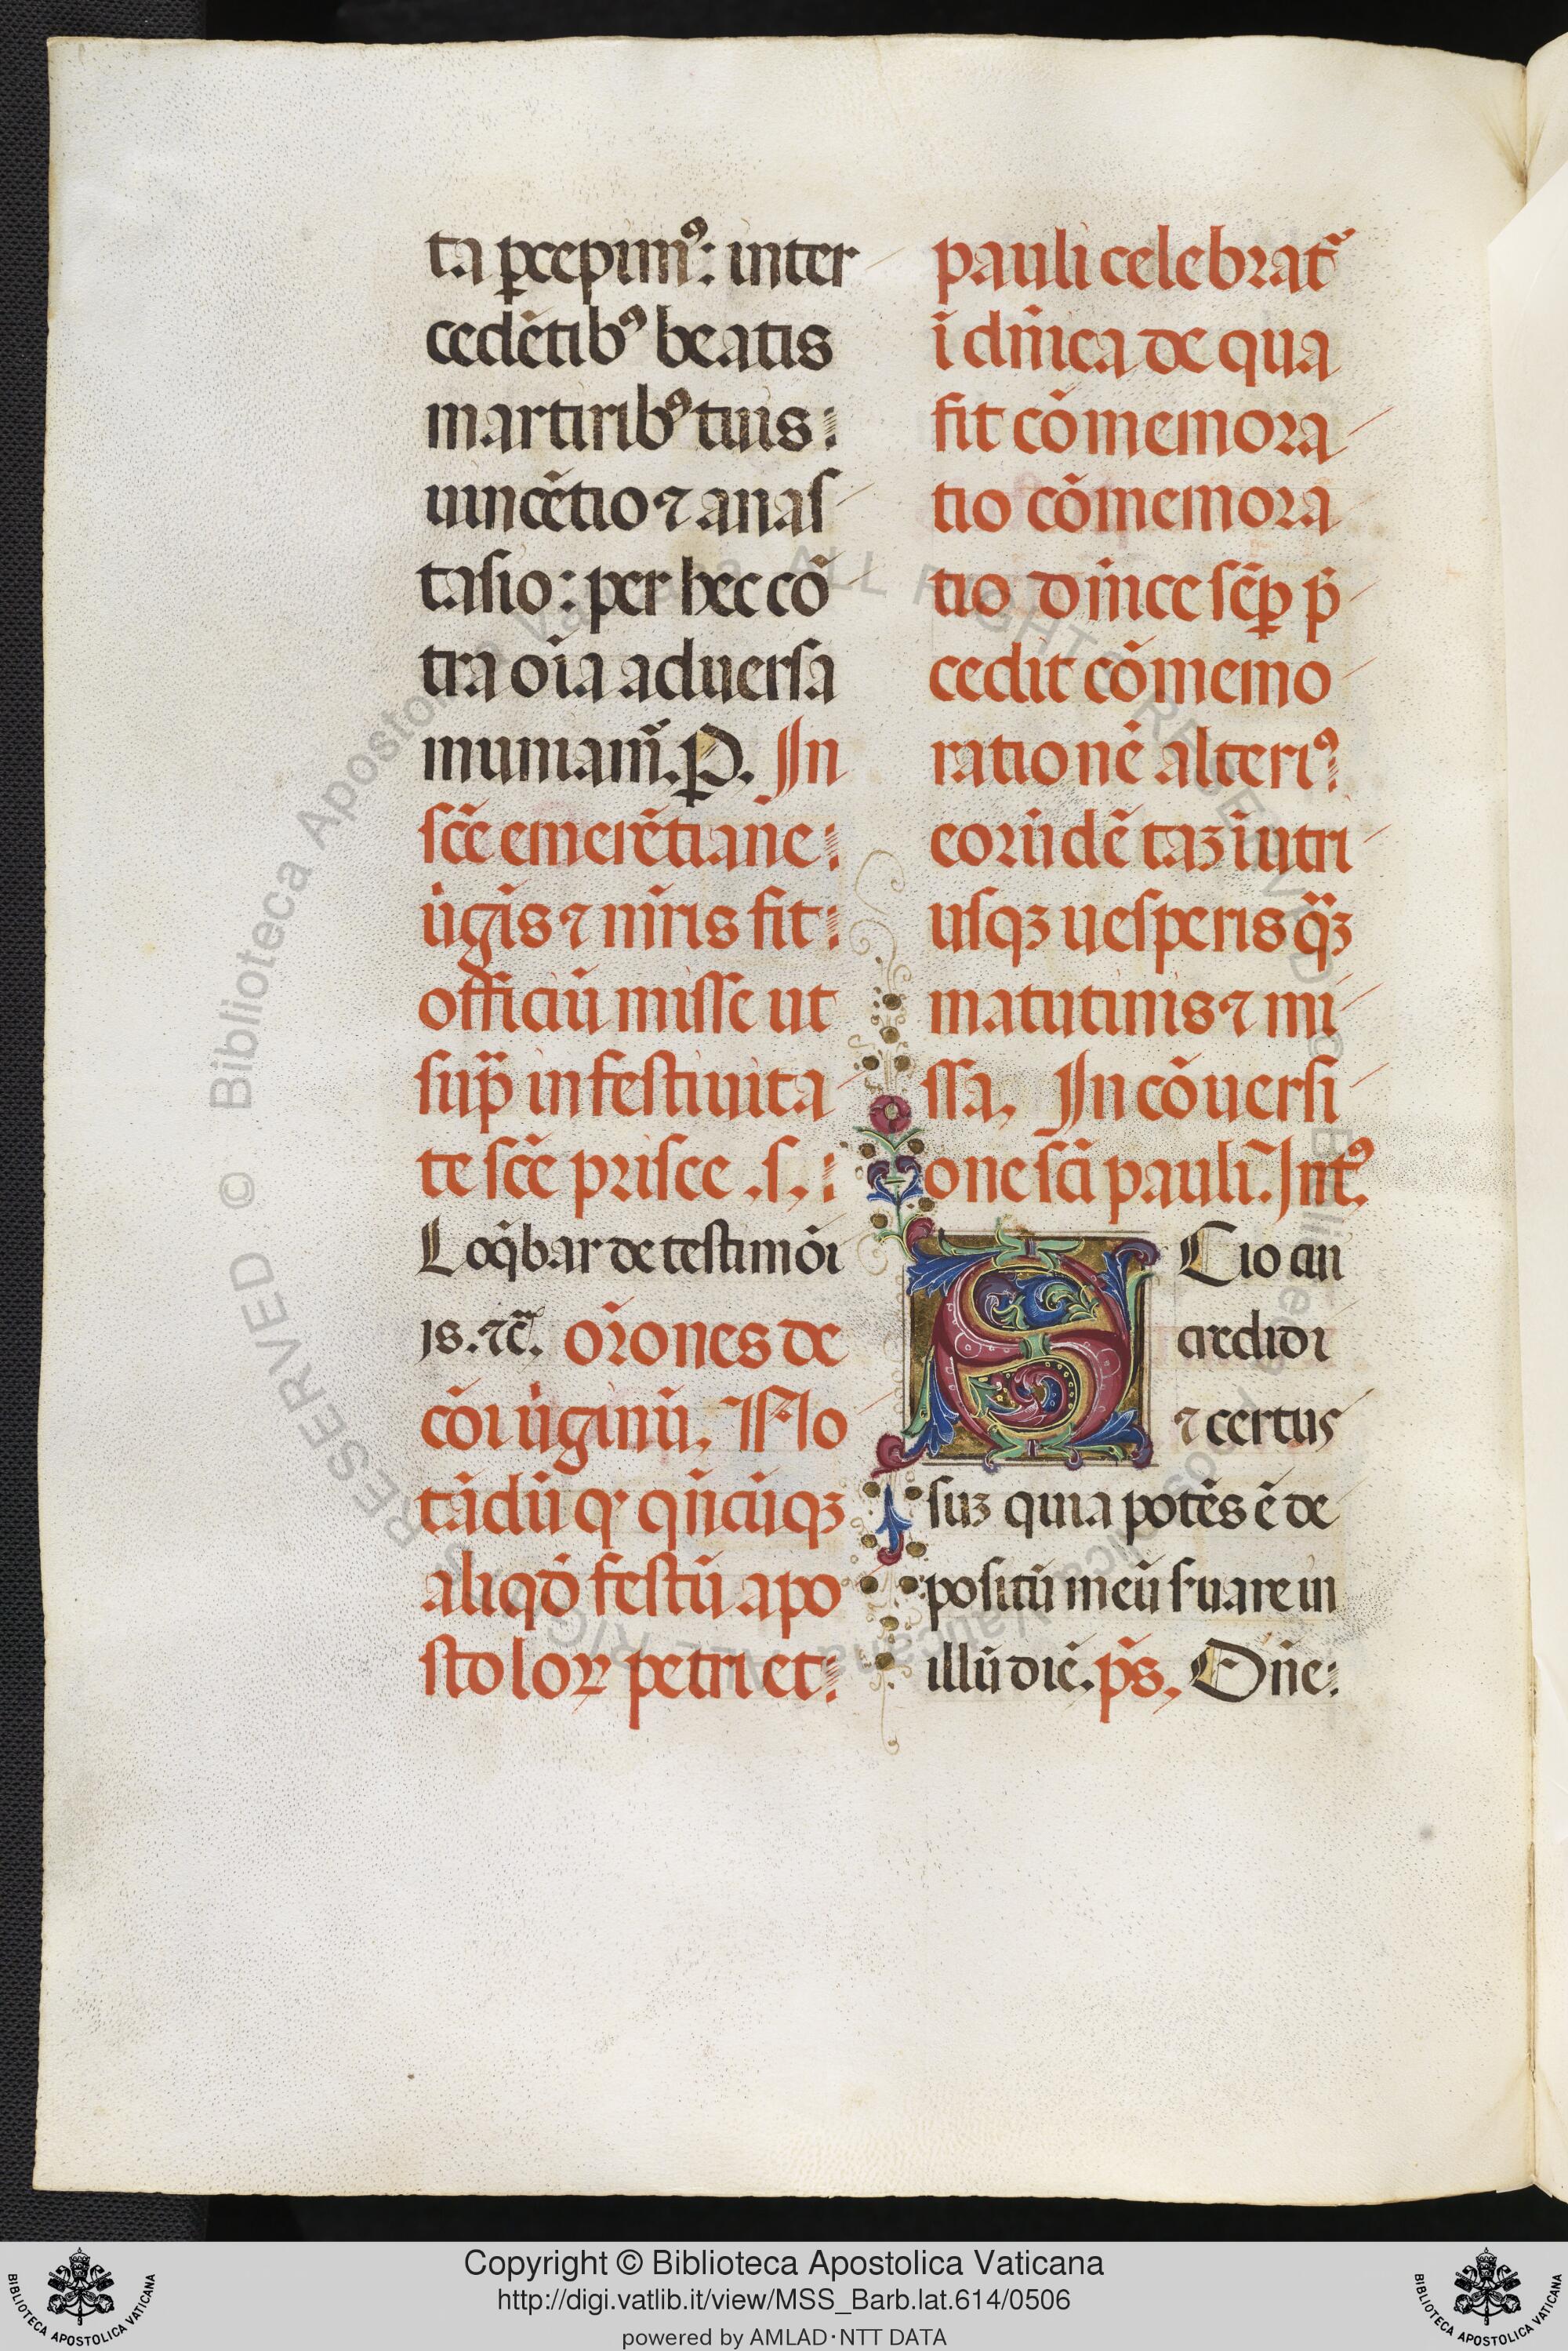 ta ꝑcepimꝰ: inter
cedētibꝰ beatis
martiribꝰ tuis:
uincētio ⁊ anaſ
taſio: per hec cō
tra oīa aduerſa
muniam̄. P̲. In
ſcē emerētiane:
ùgīs ⁊ m̄ris fit:
officiū miſſe ut
ſup̄ in feſtiuita
te ſcē priſce .ſ.:
Loq̄bar de teſtimōi
js. ⁊c̄. or̄ones de
cōi ùginū. No
tādū qꝛ qn̄cūqꝫ
aliqđ feſtū apo
ſtoloꝝ petri et:
pauli celebrat᷑
ī dn̄ica de qua
fit cōmemora
tio cōmemora
tio dn̄ice ſēꝑ p̄
cedit cōmemo
rationē alteriꝰ:
eorūdē taꝫ ī utri
uſqꝫ ueſperis q̄ꝫ
matutinis ⁊ mi
ſſa. In cōuerſi
one ſcī pauli. Int̄ꝰ.
SCio cui
credidi
⁊ certus
ſuꝫ quia potēs ē de
poſitū meū ſ'uare in
illū diē. p̄s. Dn̄e:
Copyright © Biblioteca Apostolica Vaticana
http://digi.vatlib.it/view/MSS_Barb.lat.614/0506
powered by AMLAD·NTT DATA
BIBLIOTECA APOSTOLICA VATICANA
BIBLIOTECA APOSTOLICA VATICANA
© Biblioteca Apostolica Vaticana. ALL RIGHTS RESERVED
© Biblioteca Apostolica Vaticana. ALL RIGHTS RESERVED.